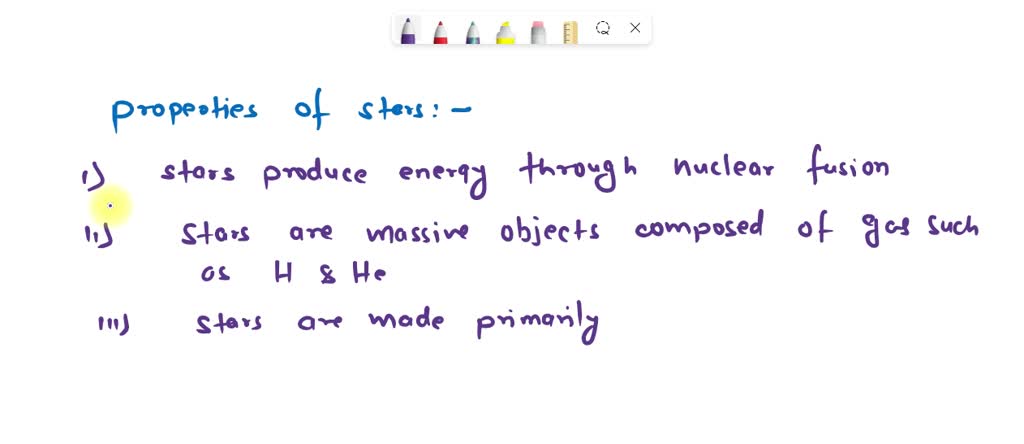 properties of stars:-
i) stars produce energy through nuclear fusion
ii) stars are massive objects composed of gas such
as H & He
iii) stars are made primarily